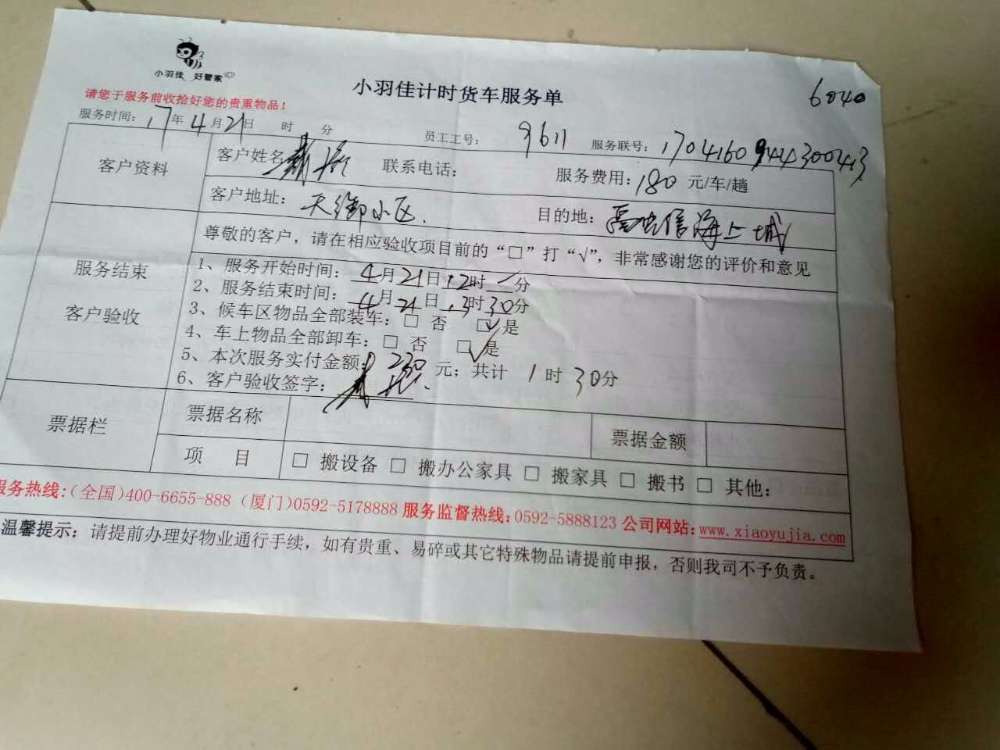 小羽佳 好管家
小羽佳计时货车服务单
6040
请您于服务前收拾好您的贵重物品！
服务时间：17年4月21日 时 分 员工工号：9611 服务联号：
客户资料
客户姓名 联系电话： 服务费用：180 元/车/趟
客户地址：天御小区. 目的地：信海上城
服务结束
客户验收
尊敬的客户，请在相应验收项目前的“□”打“√”，非常感谢您的评价和意见
1、服务开始时间：4月21日12时 分
2、服务结束时间：4月21日13时30分
3、候车区物品全部装车：□ 否 □√是
4、车上物品全部卸车：□ 否 □√是
5、本次服务实付金额：230 元；共计 1时30分
6、客户验收签字：
票据栏
票据名称 票据金额
项 目 □ 搬设备 □ 搬办公家具 □ 搬家具 □ 搬书 □ 其他：
服务热线:(全国)400-6655-888 (厦门)0592-5178888 服务监督热线:0592-5888123 公司网站:www.xiaoyujia.com
温馨提示：请提前办理好物业通行手续，如有贵重、易碎或其它特殊物品请提前申报，否则我司不予负责。